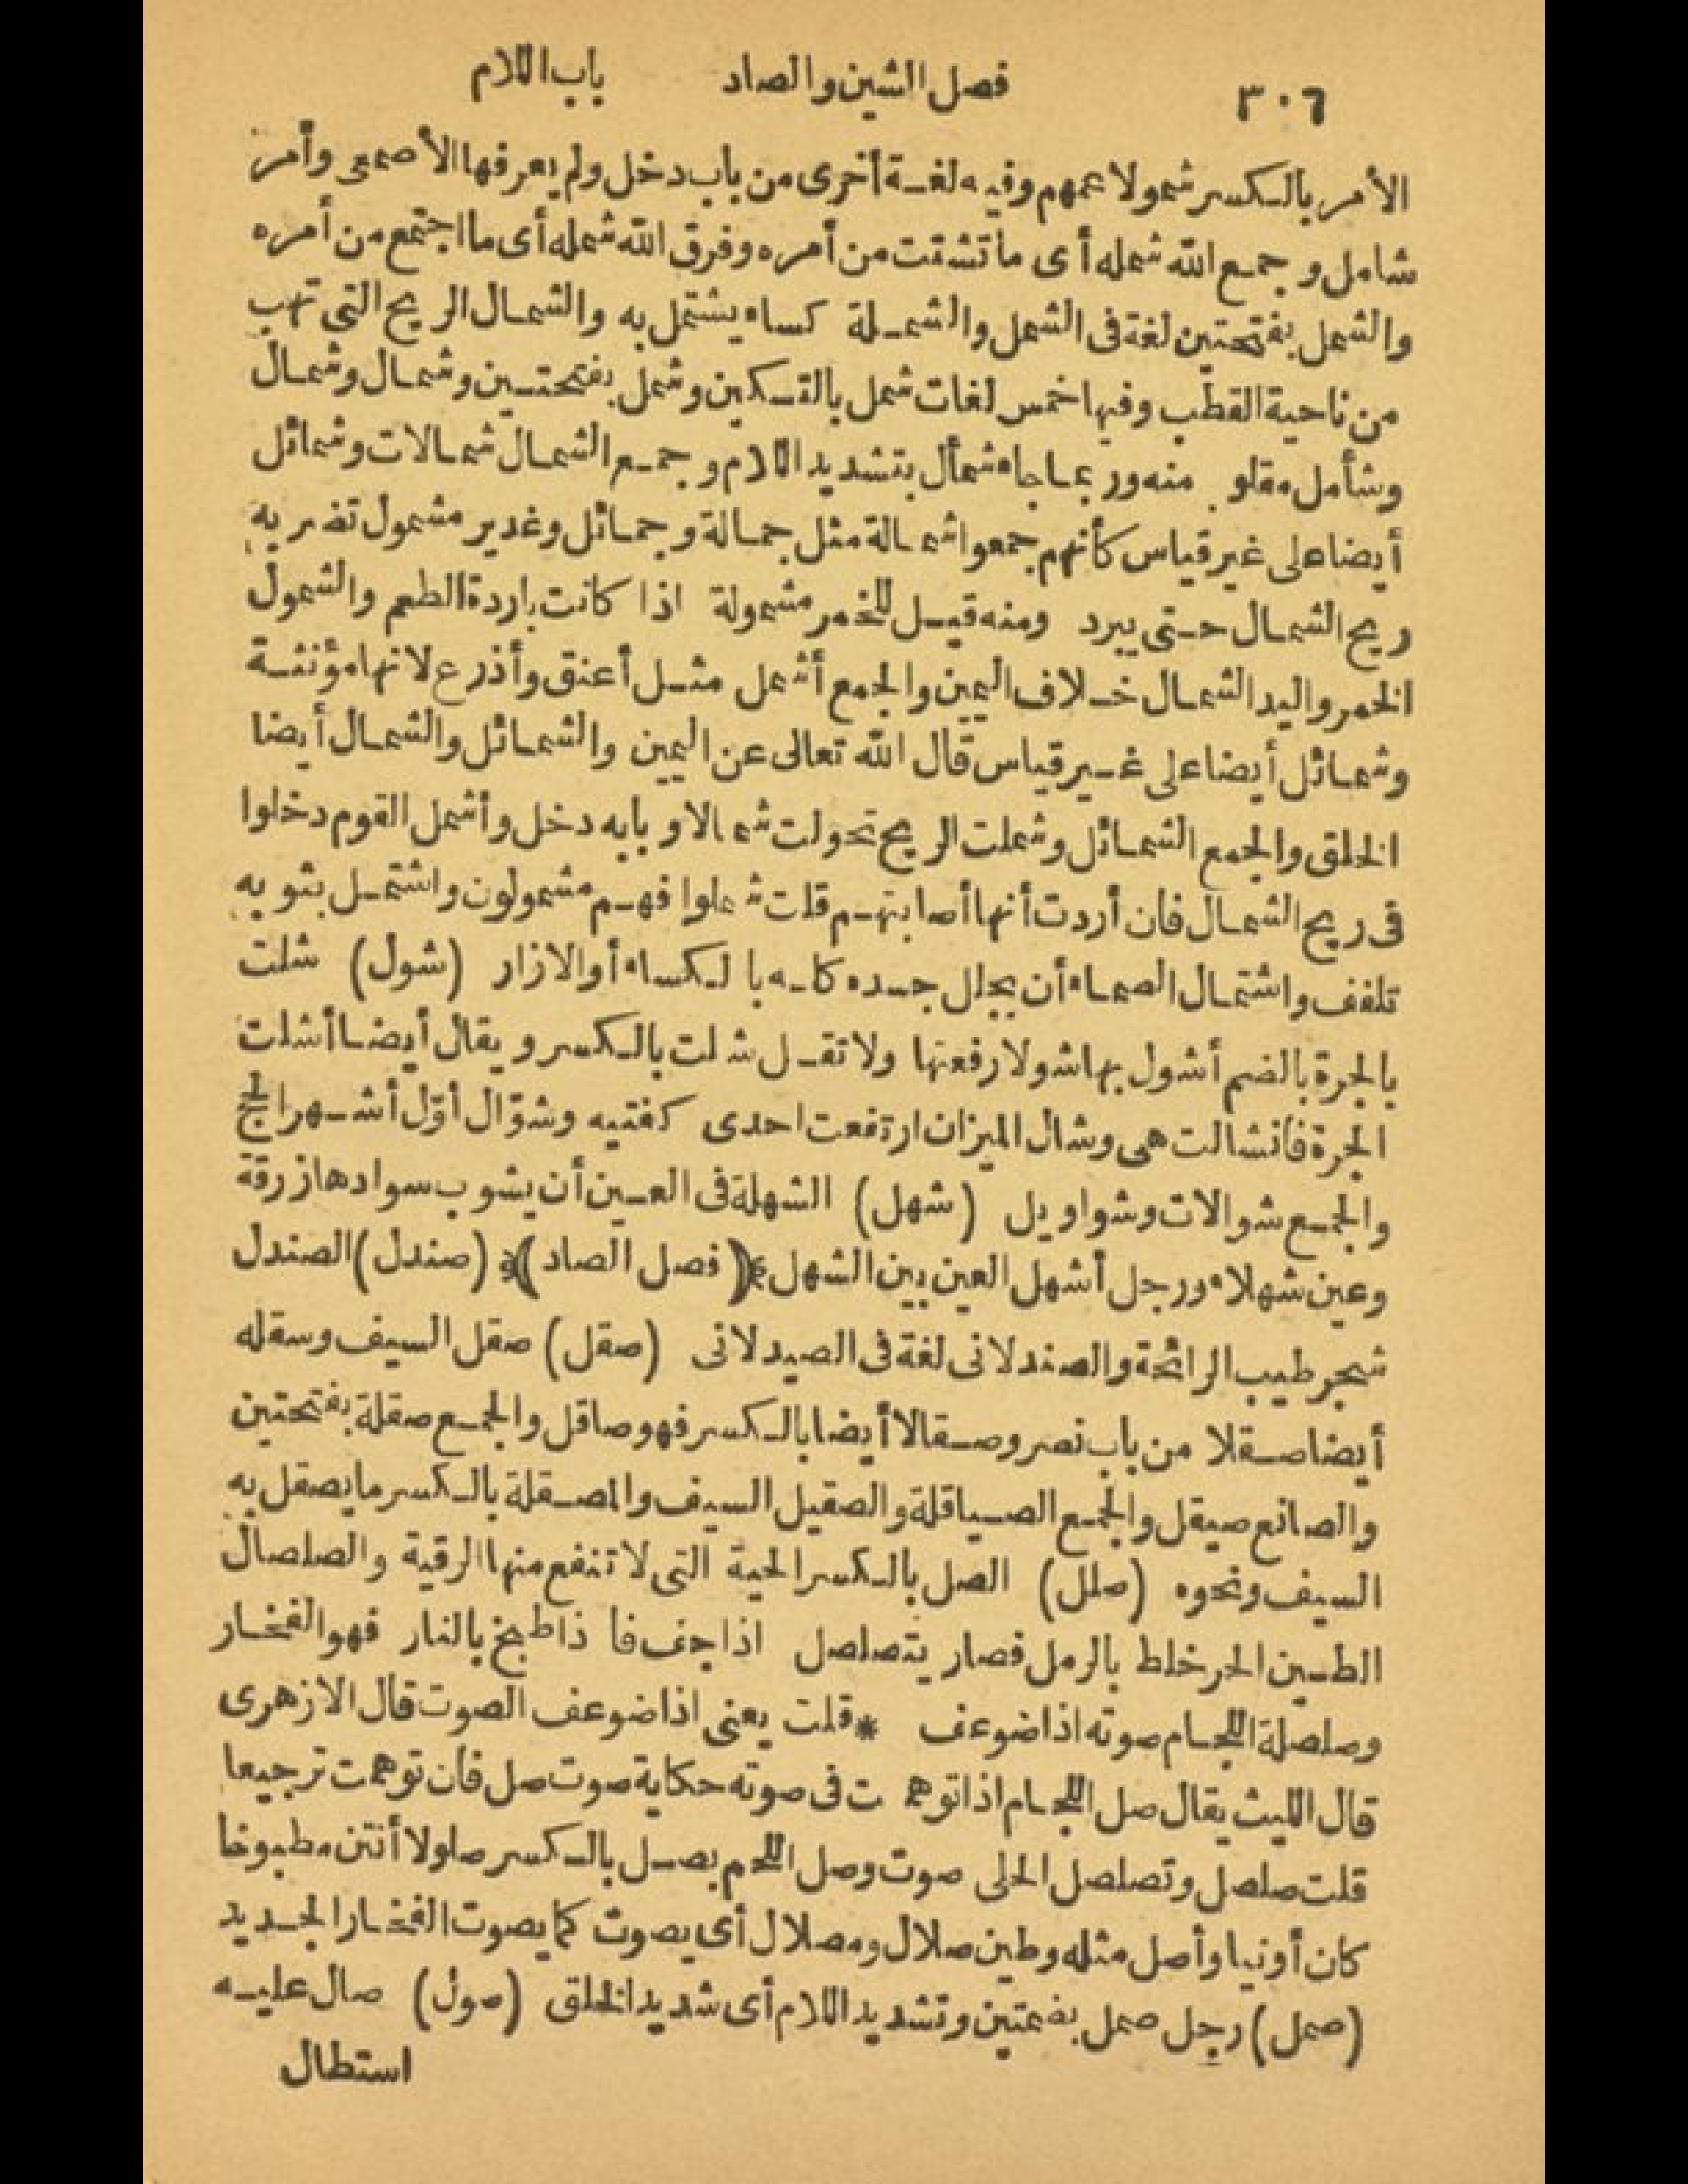 ٣٠٦ فصل الشين والصاد باب اللام
الأمر بالكسر شمولا عمهم وفيه لغة أخرى من باب دخل ولم يعرفها الأصمعى وأمر
شامل وجمع الله شمله أى ما تشتت من أمره وفرق الله شمله أى ما اجتمع من أمره
والشمل بفتحتين لغة فى الشمل والشملة كساء يشتمل به والشمال الريح التى تهب
من ناحية القطب وفيها خمس لغات شمل بالتسكين وشمل بفتحتين وشمال وشمال
وشأمل مقلوب منه وربما جاء شمأل بتشديد اللام وجمع الشمال شمالات وشمائل
أيضا على غير قياس كأنهم جمعوا شمالة مثل جمالة وجمائل وغدير مشمول تضربه
ريح الشمال حتى يبرد ومنه قيل للخمر مشمولة اذا كانت باردة الطعم والشمول
الخمر واليد الشمال خلاف اليمين والجمع أشمل مثل أعنق وأذرع لانها مؤنثة
وشمائل أيضا على غير قياس قال الله تعالى عن اليمين والشمائل والشمال أيضا
الخلق والجمع الشمائل وشملت الريح تحولت شمالا وبابه دخل وأشمل القوم دخلوا
فى ريح الشمال فان أردت أنها أصابتهم قلت شملوا فهم مشمولون واشتمل بثوبه
تلفف واشتمال الصماء أن يجلل جسده كله بالكساء أو الازار (شول) شلت
بالجرة بالضم أشول بها شولا رفعتها ولا تقل شلت بالكسر ويقال أيضا أشلت
الجرة فانشالت هى وشال الميزان ارتفعت احدى كفتيه وشوّال أوّل أشهر الحج
والجمع شوالات وشواويل (شهل) الشهلة فى العين أن يشوب سوادها زرقة
وعين شهلاء ورجل أشهل العين بين الشهل ﴿فصل الصاد﴾ (صندل) الصندل
شجر طيب الرائحة والصندلانى لغة فى الصيدلانى (صقل) صقل السيف وسقله
أيضا صقلا من باب نصر وصقالا أيضا بالكسر فهو صاقل والجمع صقلة بفتحتين
والصانع صيقل والجمع الصياقلة والصقيل السيف والمصقلة بالكسر ما يصقل به
السيف ونحوه (صلل) الصل بالكسر الحية التى لا تنفع منها الرقية والصلصال
الطين الحر خلط بالرمل فصار يتصلصل اذا جف فاذا طبخ بالنار فهو الفخار
وصلصلة اللجام صوته اذا ضوعف * قلت يعنى اذا ضوعف الصوت قال الازهرى
قال الليث يقال صل اللجام اذا توهمت فى صوته حكاية صوت صل فان توهمت ترجيعا
قلت صلصل وتصلصل الحلى صوت وصل اللحم يصل بالكسر صلولا أنتن مطبوخا
كان أو نيا وأصل مثله وطين صلال ومصلال أى يصوت كما يصوت الفخار الجديد
(صمل) رجل صمل بضمتين وتشديد اللام أى شديد الخلق (صول) صال عليه
استطال